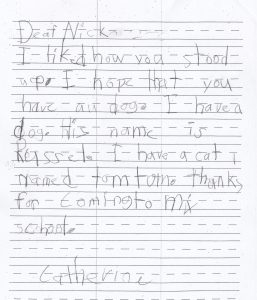 Dear Nick
I liked how you stood
up. I hope that you
have an dog. I have a
dog. His name is
Russel. I have a cat
named tomtom. thanks
for coming to my
school.
Catherine